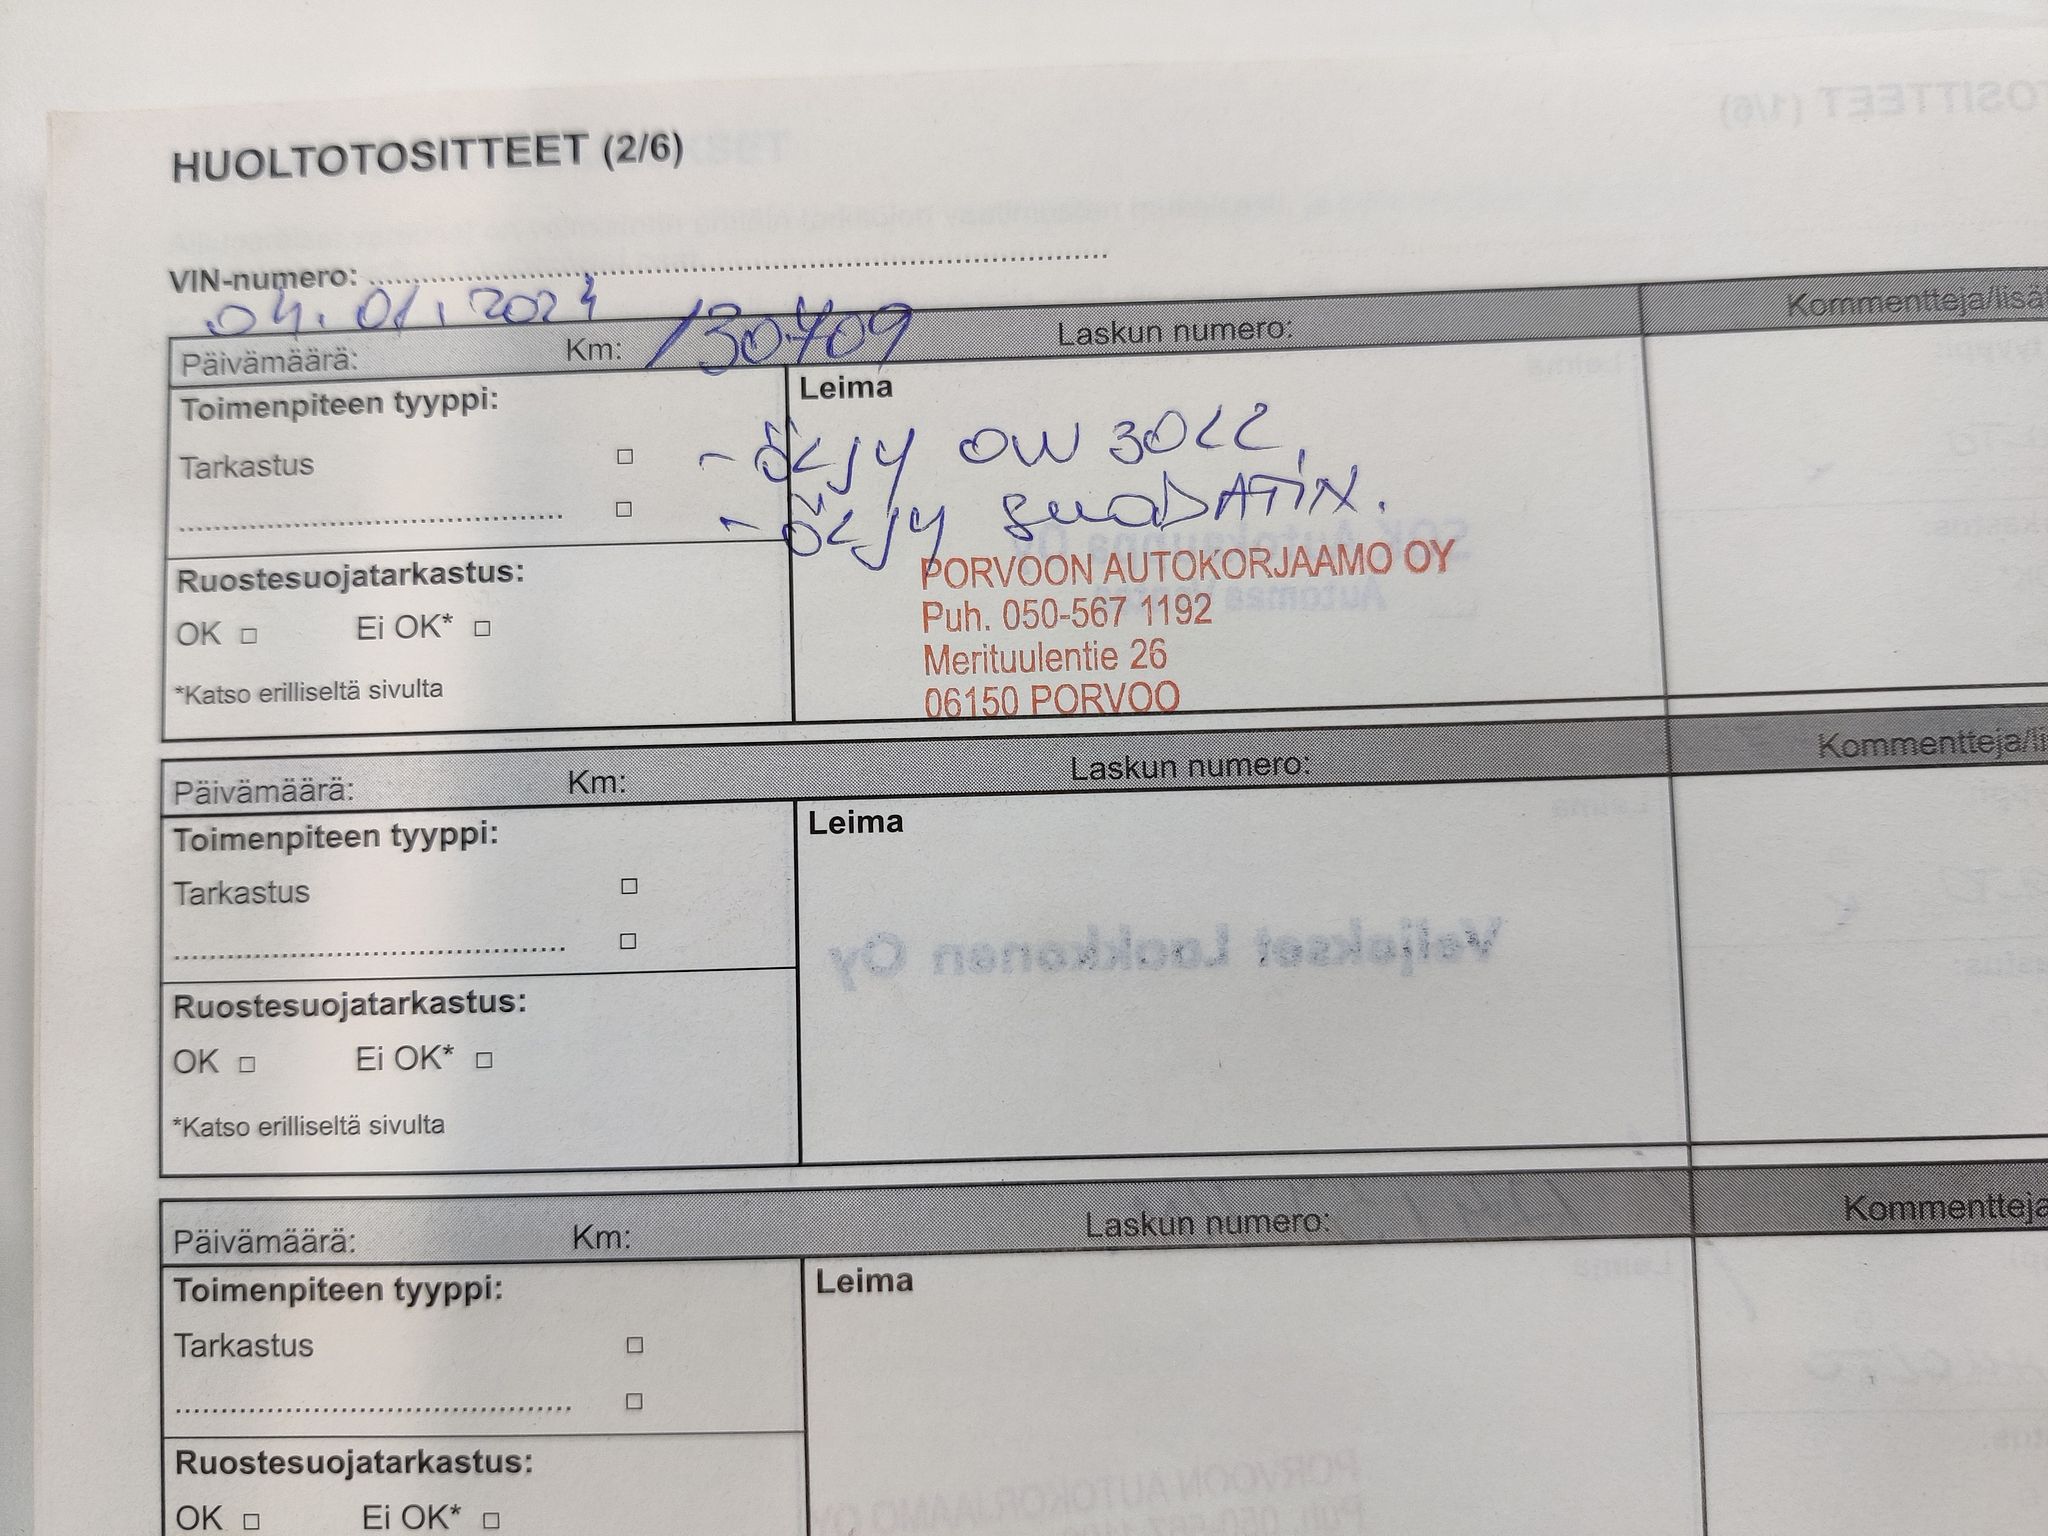 HUOLTOTOSITTEET (2/6)
VIN-numero:
04.01.2024 130409
Päivämäärä: Km: Laskun numero: Kommentteja/lisä
Toimenpiteen tyyppi: Leima
Tarkastus
- ÖLJY OW 30 LL,
- ÖLJY SUODATIN.
Ruostesuojatarkastus:
OK Ei OK*
*Katso erilliseltä sivulta
PORVOON AUTOKORJAAMO OY
Puh. 050-567 1192
Merituulentie 26
06150 PORVOO
Päivämäärä: Km: Laskun numero: Kommentteja/li
Toimenpiteen tyyppi: Leima
Tarkastus
Ruostesuojatarkastus:
OK Ei OK*
*Katso erilliseltä sivulta
Veljekset Laakkonen Oy
Päivämäärä: Km: Laskun numero: Kommentteja
Toimenpiteen tyyppi: Leima
Tarkastus
Ruostesuojatarkastus:
OK Ei OK*
PORVOON AUTOKORJAAMO OY